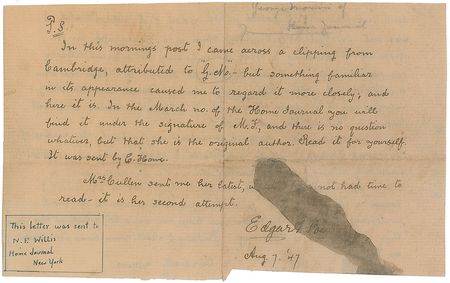 P.S
In this mornings post I came across a clipping from
Cambridge, attributed to "G.M."- but something familiar
in its appearance caused me to regard it more closely, and
here it is. In the March no. of the Home Journal you will
find it under the signature of M.F, and there is no question
whatever, but that she is the original author. Read it for yourself.
It was sent by E. Howe.
Mrs Cullen sent me her latest, not had time to
read - it is her second attempt.
Edgar
Aug 7. '47
This letter was sent to
N. P. Willis
Home Journal
New York